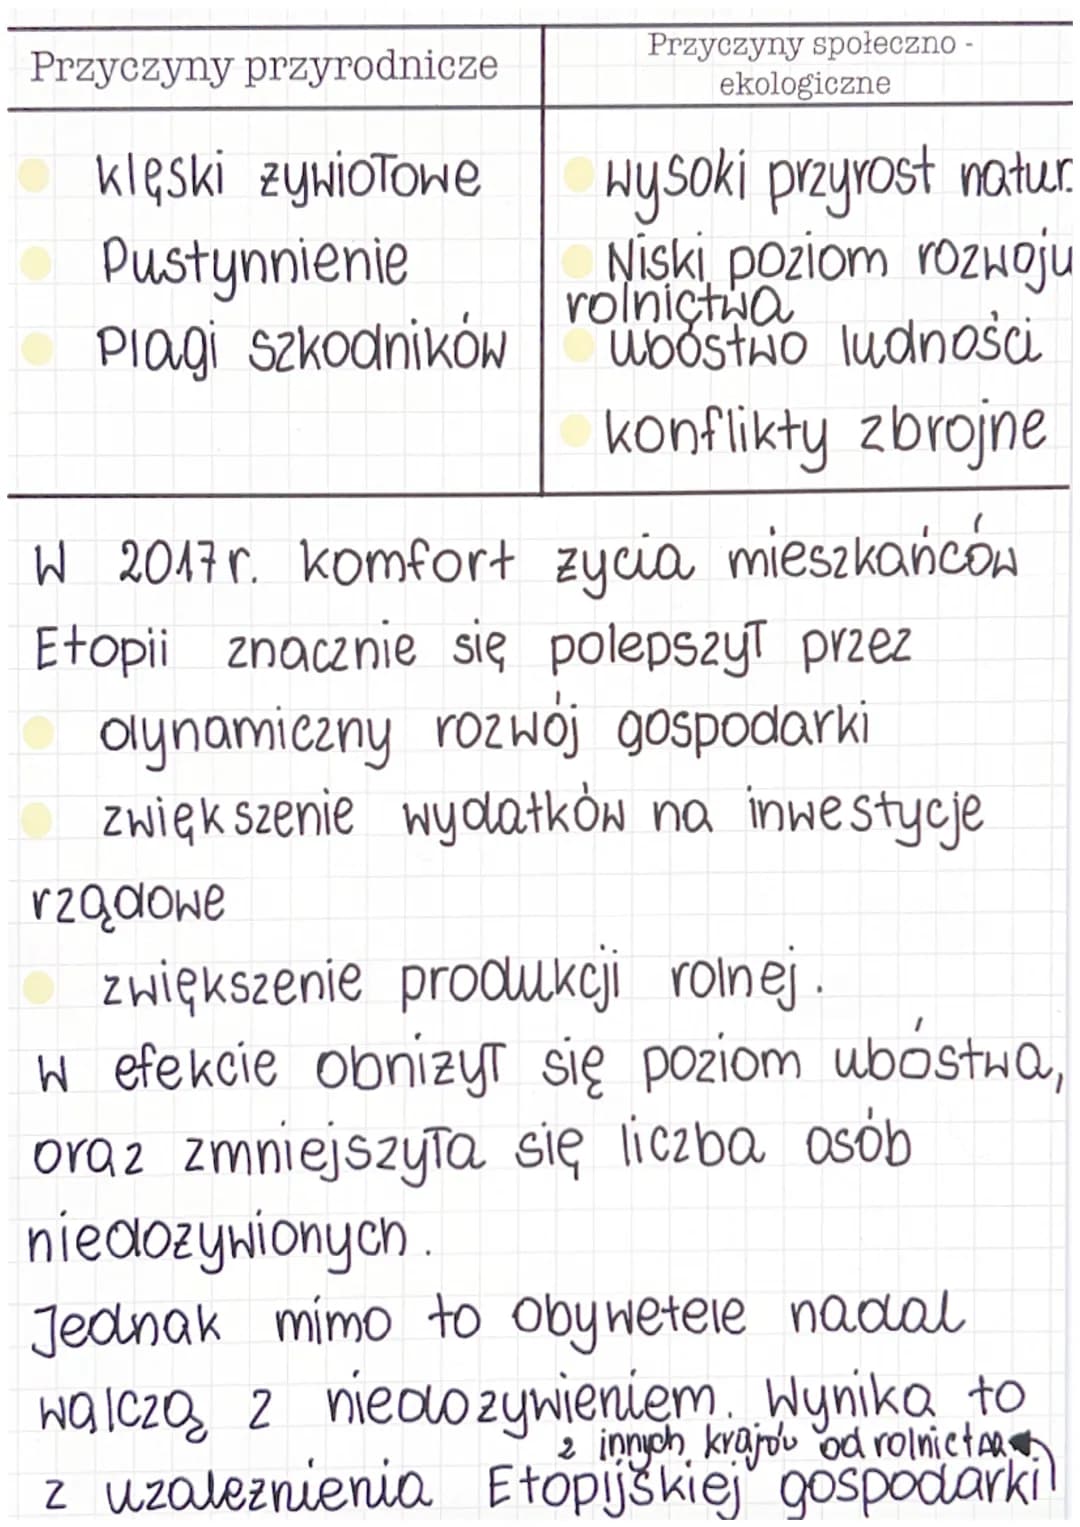 Przyczyny przyrodnicze
klęski żywiołowe
Pustynnienie
Plagi szkodników
Przyczyny społeczno -
ekologiczne
wysoki przyrost natur.
Niski poziom rozwoju
rolnictwa
ubóstwo ludności
konflikty zbrojne
W 2017r. komfort życia mieszkańców
Etopii znacznie się polepszył przez
dynamiczny rozwój gospodarki
zwiększenie wydatków na inwestycje
rządowe
zwiększenie produkcji rolnej.
W efekcie obniżył się poziom ubóstwa,
oraz zmniejszyła się liczba osób
niedożywionych.
Jednak mimo to obywetele nadal
walczą z niedożywieniem. Wynika to
z innych krajów od rolnictwa
z uzależnienia Etopijskiej gospodarki